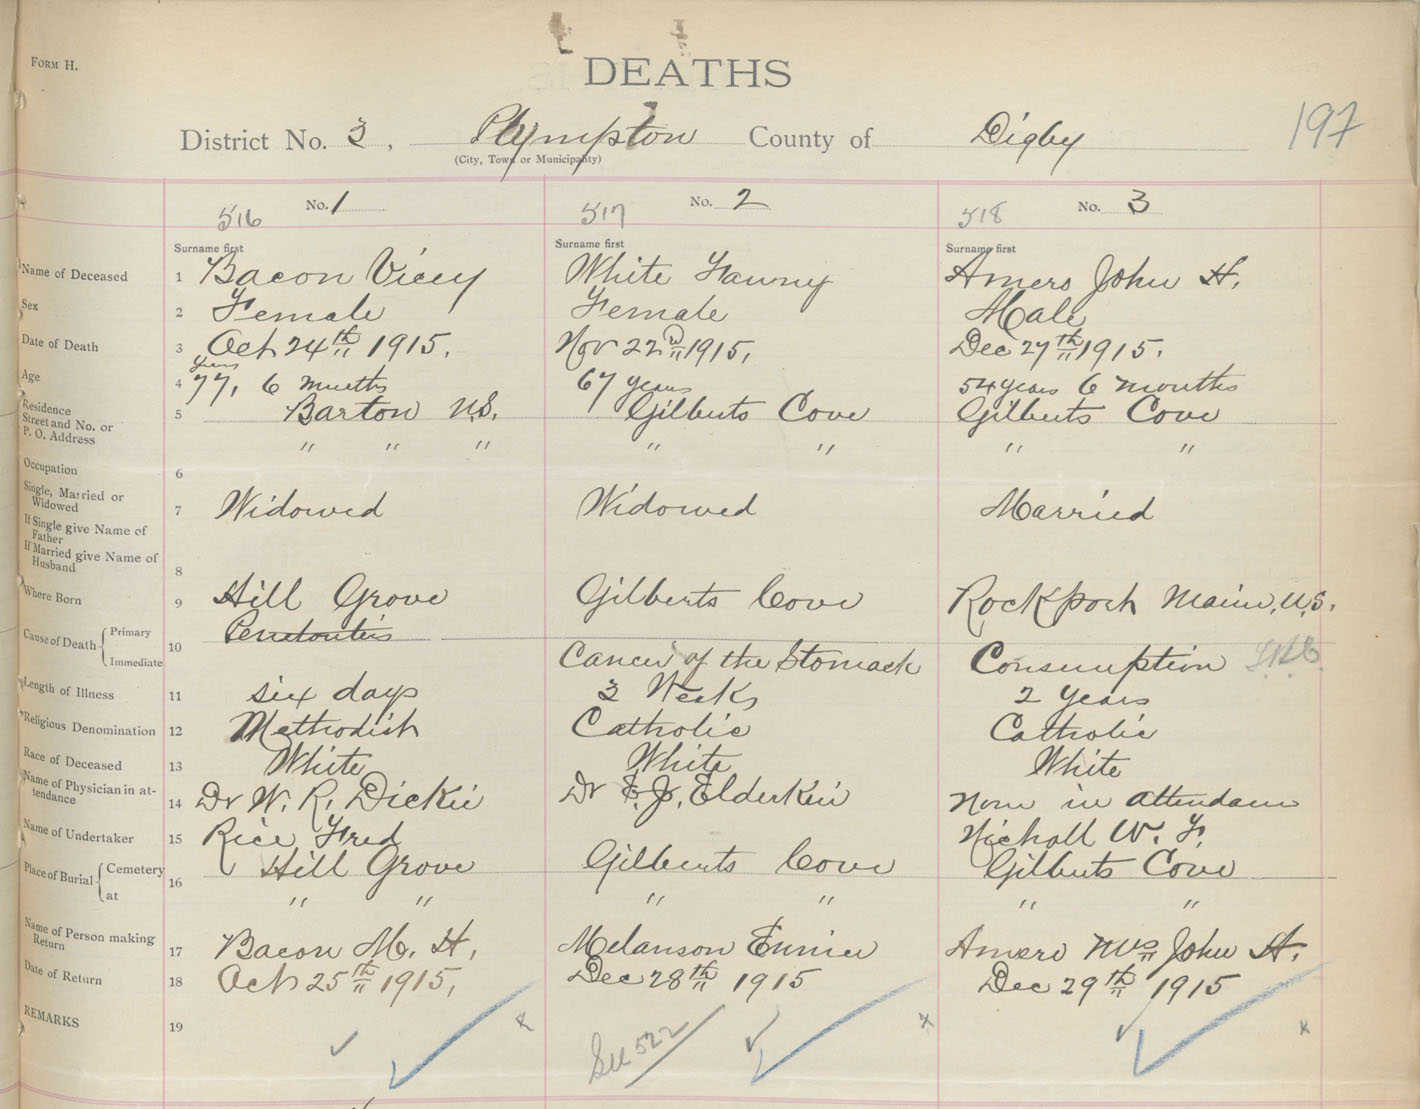 FORM H.
DEATHS
197
District No. 3, Plympton County of Digby
(City, Town or Municipality)
516 No. 1
517 No. 2
518 No. 3
Surname first Surname first Surname first
Name of Deceased 1 Bacon Vicey White Fanny Amero John H.
Sex 2 Female Female Male
Date of Death 3 Oct 24th 1915. Nov 22nd 1915. Dec 27th 1915.
Age 4 77 years, 6 months 67 years 54 years 6 months
Residence Street and No. or P. O. Address 5 Barton N.S. Gilberts Cove Gilberts Cove
" " " " " " "
Occupation 6
Single, Married or Widowed 7 Widowed Widowed Married
If Single give Name of Father
If Married give Name of Husband 8
Where Born 9 Hill Grove Gilberts Cove Rockport Maine, U.S.
Cause of Death { Primary Immediate 10 Perretontis Cancer of the Stomack Consumption
Length of Illness 11 six days 3 Weeks 2 years
Religious Denomination 12 Methodist Catholic Catholic
Race of Deceased 13 White White White
Name of Physician in attendance 14 Dr W. R. Dickie Dr E. J. Elderkin None in attendance
Name of Undertaker 15 Rice Fred Nicholl W. F.
Place of Burial { Cemetery at 16 Hill Grove Gilberts Cove Gilberts Cove
" " " " " "
Name of Person making Return 17 Bacon M. H. Melanson Amero Mrs John H.
Date of Return 18 Oct 25th 1915. Dec 28th 1915 Dec 29th 1915
REMARKS 19
See 522